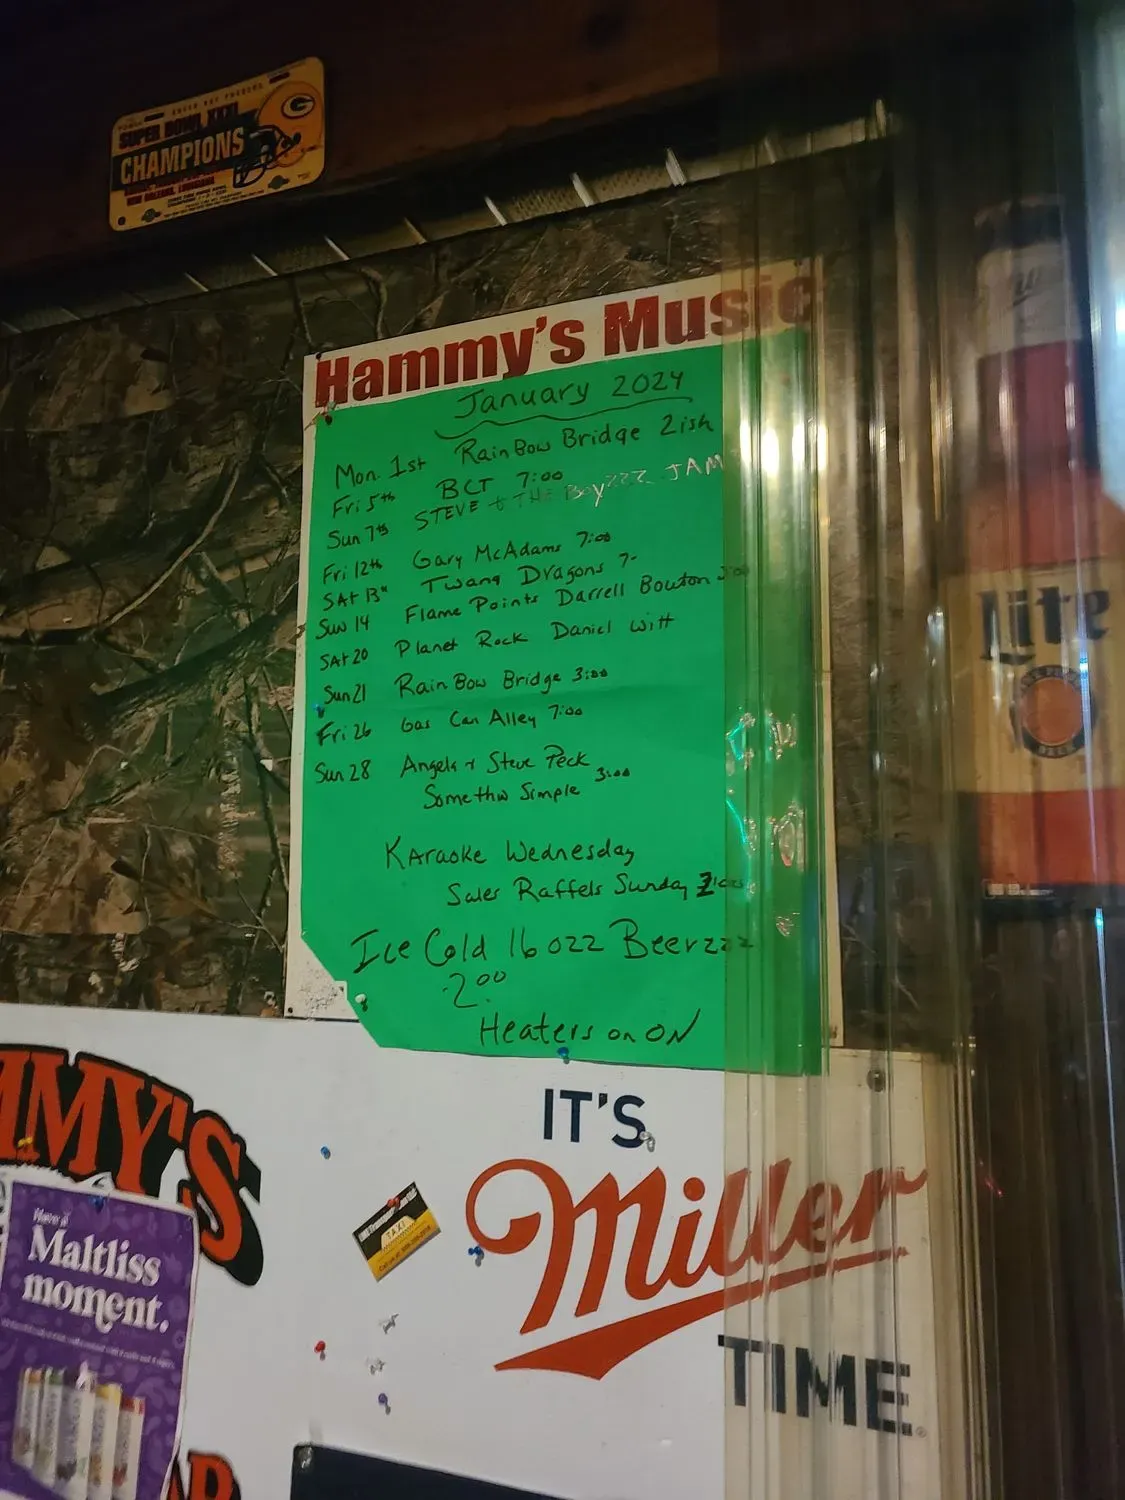 SUPER BOWL XXXI
CHAMPIONS
NEW ORLEANS, LOUISIANA
Hammy's Music
January 2024
Mon. 1st RainBow Bridge 2ish
Fri 5th BCT 7:00
Sun 7th STEVE + THE BoyZZZ JAM
Fri 12th Gary McAdams 7:00
SAt 13th Twang Dragons 7-
Sun 14 Flame Points Darrell Bouton 3:00
SAt 20 Planet Rock Daniel Witt
Sun 21 RainBow Bridge 3:00
Fri 26 Gas Can Alley 7:00
Sun 28 Angela + Steve Peck
Somethin Simple 3:00
KAraoke Wednesday
Sales Raffels Sunday
Ice Cold 16 ozz Beerzzz
2.00
Heaters on ON
Lite
MMY'S
IT'S
Miller
TIME
TAXI
Have a
Maltliss
moment.